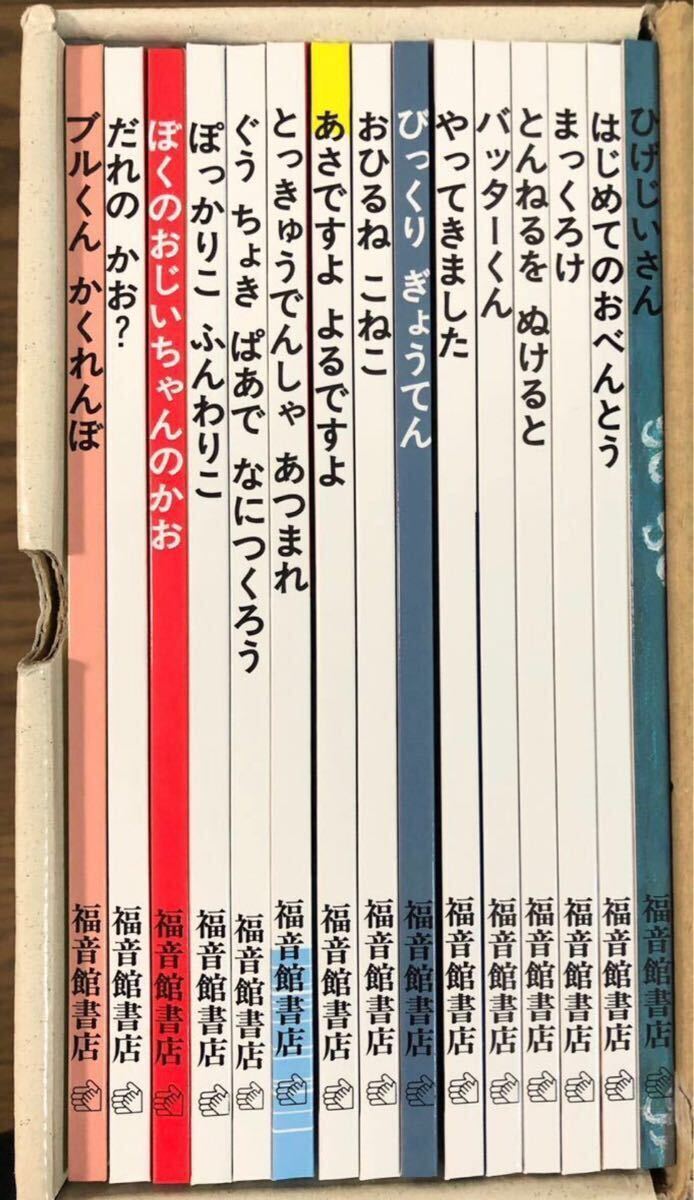 ブルくん かくれんぼ
福音館書店
だれの かお?
福音館書店
ぼくのおじいちゃんのかお
福音館書店
ぽっかりこ ふんわりこ
福音館書店
ぐう ちょき ぱあで なにつくろう
福音館書店
とっきゅうでんしゃ あつまれ
福音館書店
あさですよ よるですよ
福音館書店
おひるね こねこ
福音館書店
びっくり ぎょうてん
福音館書店
やってきました
福音館書店
バッターくん
福音館書店
とんねるを ぬけると
福音館書店
まっくろけ
福音館書店
はじめてのおべんとう
福音館書店
ひげじいさん
福音館書店